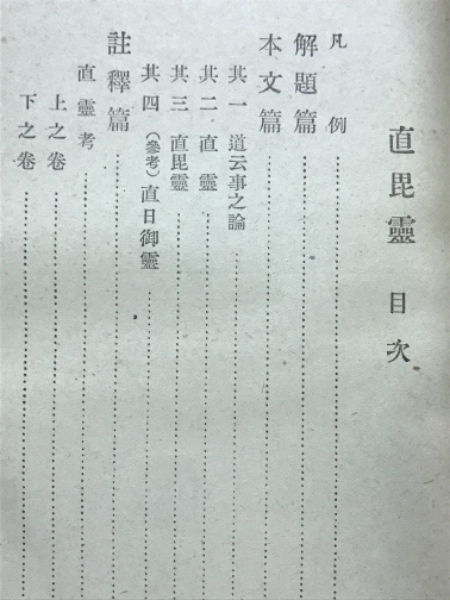 直毘靈 目次
凡例
解題篇
本文篇
其一 道云事之論
其二 直靈
其三 直毘靈
其四 (參考)直日御靈
註釋篇
直靈考
上之卷
下之卷